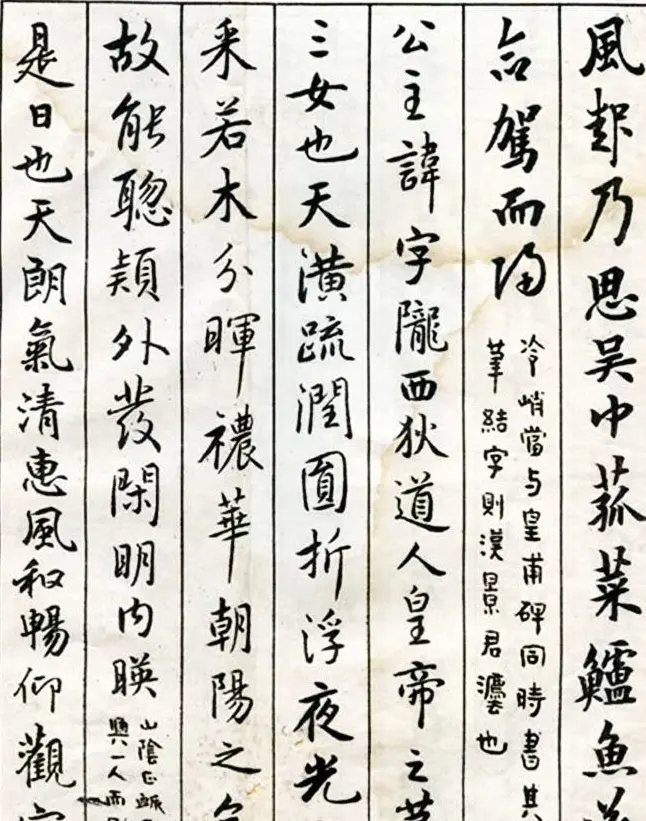 風起乃思吳中菰菜鱸魚
命駕而歸
冷峭當与皇甫碑同時書其
筆結字則漢景君遺也
公主諱字隴西狄道人皇帝之第
三女也天潢疏潤圓折浮夜光
采若木分暉禯華朝陽之色
故能聡穎外發閑明内暎
山陰
興一人而
是日也天朗氣清惠風和暢仰觀宇